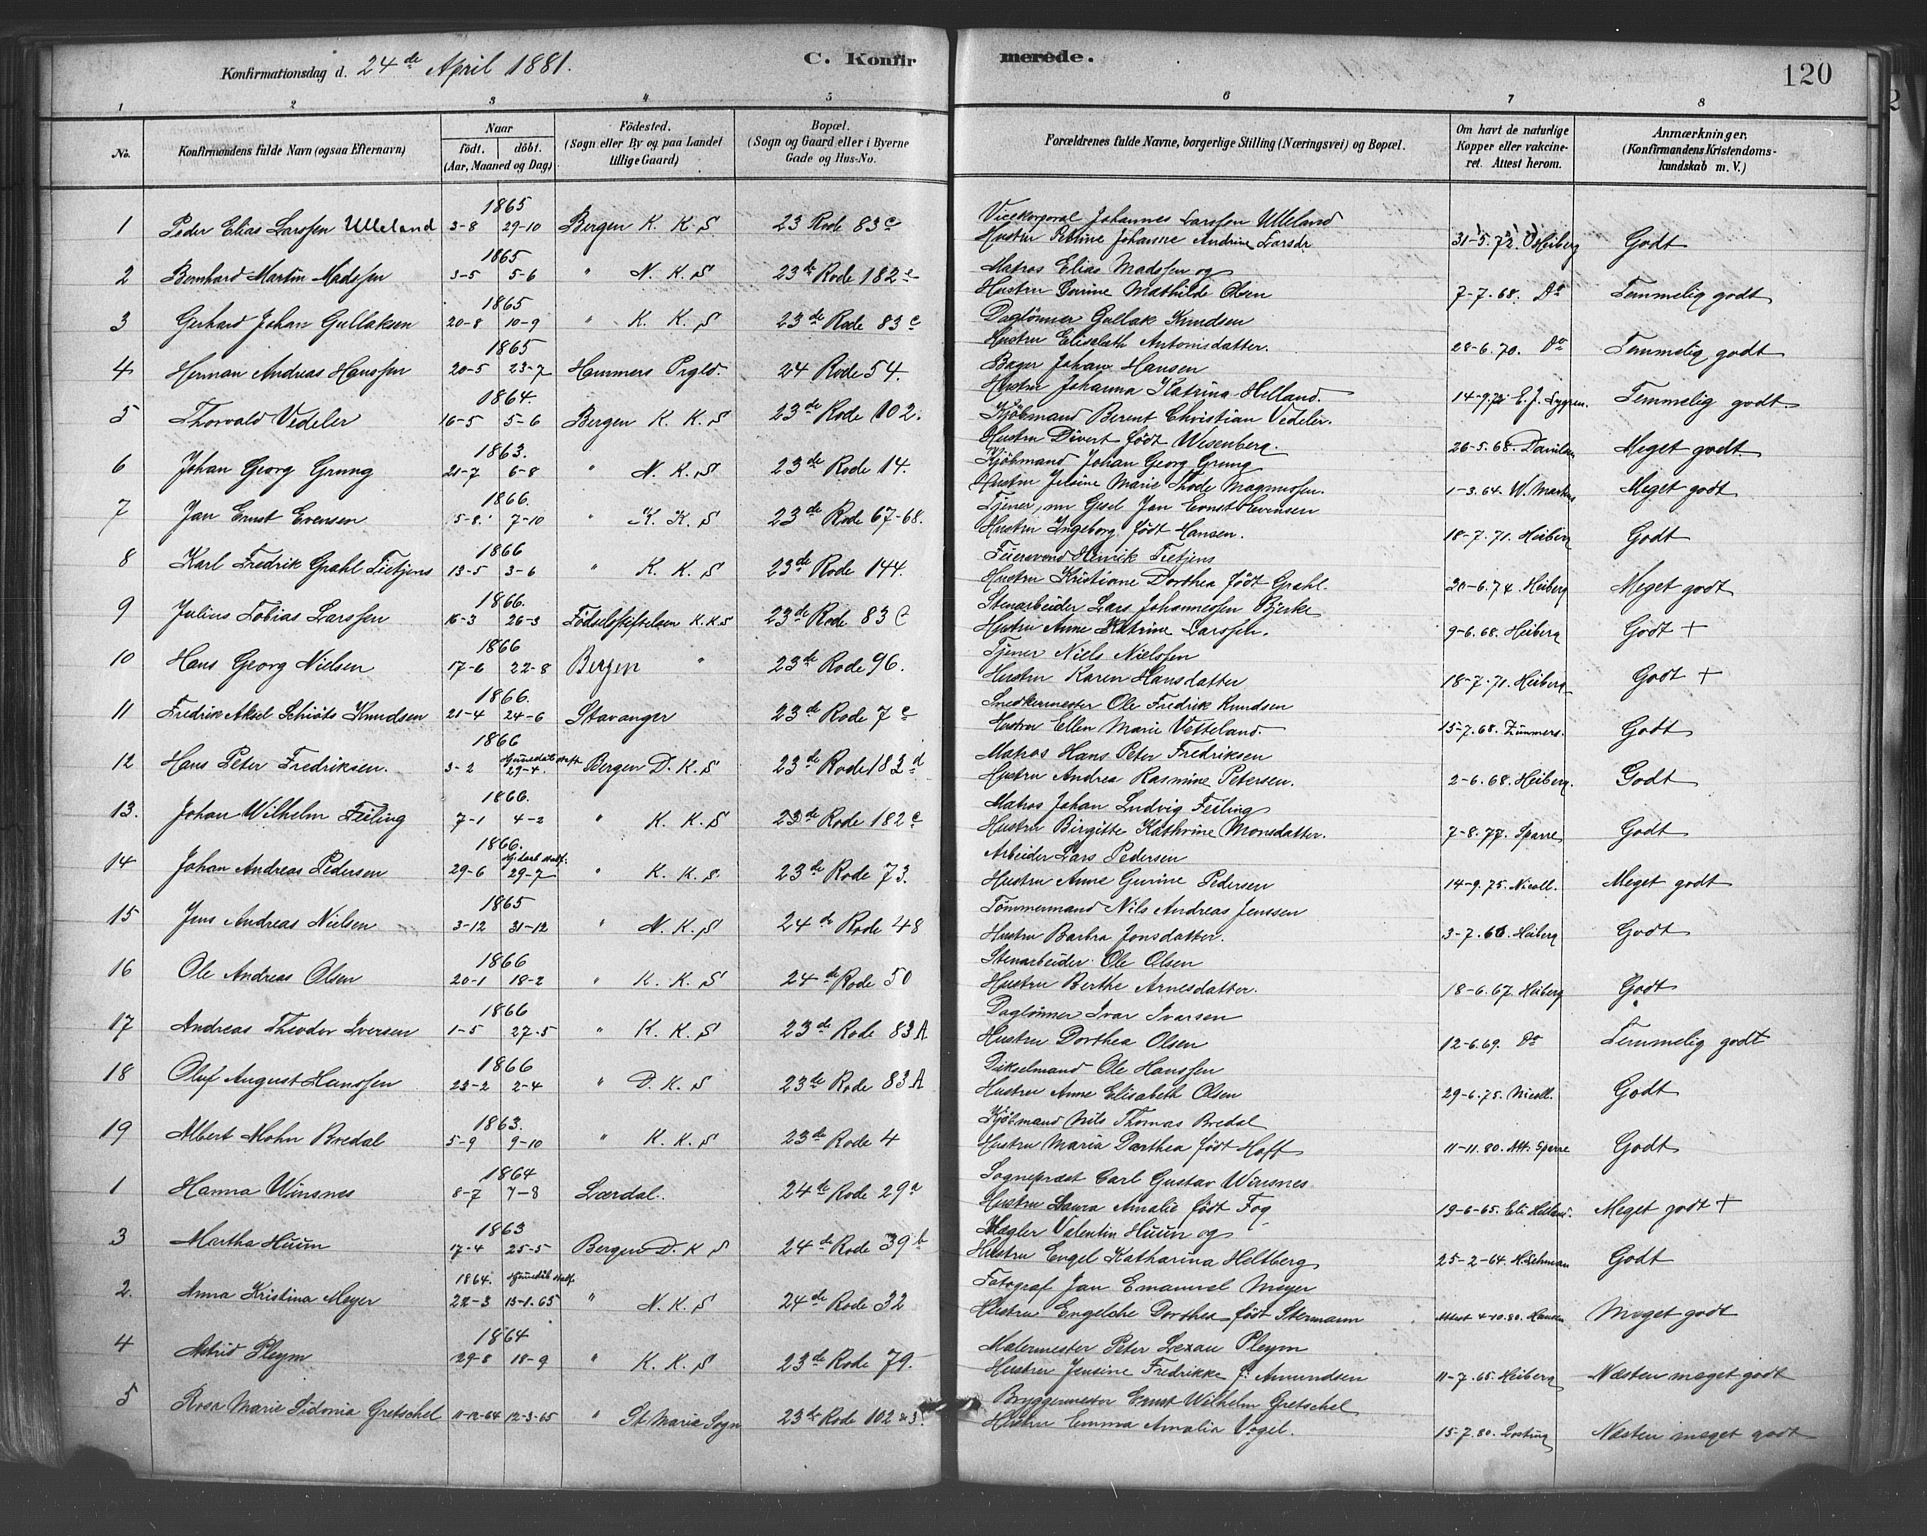 Konfirmationsdag d. 24de April 1881. C. Konfirmerede. 120
1 2 3 4 5 6 7 8
No. Konfirmandens fulde Navn (ogsaa Efternavn) Naar födt. döbt. (Aar, Maaned og Dag) Födested. (Sogn eller By og paa Landet tillige Gaard) Bopæl. (Sogn og Gaard eller i Byerne Gade og Hus-No. Forældrenes fulde Navne, borgerlige Stilling (Næringsvei) og Bopæl. Om havt de naturlige Kopper eller vakcineret. Attest herom. Anmærkninger. (Konfirmandens Kristendomskundskab m. V.)
1865
1 Peder Elias Larssen Ulleland 3-8 29-10 Bergen K. K. S 23 Rode 83c Vicekorporal Johannes Larssen Ulleland
Hustru Petrine Johanne Andrine Larsdr 31-5.72. Heiberg Godt
1865
2 Bernhard Martin Madssen 3-5 5-6 " N. K. S 23de Rode 182c Matros Elias Madssen og
Hustru Gurine Mathilde Olsen 7-7.68. Do Temmelig godt
1865
3 Gerhard Johan Gullaksen 20-8 10-9 " K. K. S 23de Rode 83c Daglönner Gullak Knudsen
Hustru Elisabeth Antonisdatter. 28-6.70. Do Temmelig godt
1865
4 Herman Andreas Hanssen 20-5 23-7 Hammers Prgld. 24 Rode 54. Bager Johan Hansen
Hustru Johanna Katrina Helland. 14-9.72 E. J. Lygren. Temmelig godt.
1864.
5 Thorvald Vedeler 16-5 5-6 Bergen K. K. S 23de Rode 102. Kjöbmand Berent Christian Vedeler.
Hustru Divert födt Wesenberg. 26-5.68. Danielsen Meget godt.
1863.
6 Johan Georg Grung 21-7 6-8 " N. K. S 23de Rode 14. Kjöbmand Johan Georg Grung
Hustru Jelsine Marie Thode Magnussen. 1-3.64. W. Martens Meget godt
1866.
7 Jan Ernst Evensen 5-8. 7-10 " K. K. S 23de Rode 67-68. Tjener, nu Gjest Jan Ernst Evensen
Hustru Ingeborg födt Hansen. 18-7.71. Heiberg Godt
1866
8 Karl Fredrik Grahl Tietjens 13-5 3-6 " K. K. S 23de Rode 144. Feiersvend Henrik Tietjens
Hustru Kristiane Dorthea födt Grahl. 20-6.74. Heiberg Meget godt
1866.
9 Julius Tobias Larssen 16-3 26-3 Födselsstiftelsen K.K.S 23de Rode 83 C Stenarbeider Lars Johannessen Bjerke
Hustru Anne Katrine Larssen. 9-6.68. Heiberg Godt +
1866
10 Hans Georg Nielsen 17-6 22-8 Bergen " 23de Rode 96. Tjener Niels Nielssen
Hustru Karen Hansdatter 18-7.71. Heiberg Godt +
1866.
11 Fredrik Aksel Schiöts Knudsen 21-4 24-6 Stavanger 23de Rode 7c Snedkermester Ole Fredrik Knudsen
Hustru Ellen Marie Vetteland. 15-7.68. Zümmers. Godt
1866
12 Hans Peter Fredriksen. 3-2 Hjemedöbt Stadf. 29-4. Bergen D. K. S 23de Rode 183d Matros Hans Peter Fredriksen
Hustru Andrea Rasmine Petersen. 2-6.68. Heiberg. Godt
1866.
13. Johan Wilhelm Feiling 7-1 4-2 " K. K. S 23de Rode 182c Matros Johan Ludvig Feiling
Hustru Birgitte Kathrine Monsdatter. 7-8.77. Sparre Godt
1866.
14 Johan Andreas Pedersen 29-6 29-7 " K. K. S. 23de Rode 73. Arbeider Lars Pedersen
Hustru Anne Gurine Pedersen 14-9.75. Nicoll. Meget godt
1865
15 Jens Andreas Nielsen 3-12 31-12 " N. K. S 24de Rode 48 Tömmermand Nils Andreas Jenssen
Hustru Barbra Jonsdatter. 3-7.66. Heiberg Godt
1866
16 Ole Andreas Olsen 20-1 18-2 " K. K. S 24de Rode 50 Stenarbeider Ole Olsen
Hustru Berthe Arnesdatter. 18-6.67. Heiberg Godt
1866
17 Andreas Theodor Iversen 1-5 27-5 " K. K. S 23de Rode 83 A Daglönner Ivar Ivarsen
Hustru Dorthea Olsen 12-6.69. Do Temmelig godt
1866
18 Oluf August Hanssen 23-2 2-4 " D. K. S 23de Rode 83 A Dikselmand Ole Hanssen
Hustru Anne Elisabeth Olsen 29-6.75. Nicoll. Godt
1863.
19 Albert Mohn Bredal 5-9 9-10 " K. K. S 23de Rode 4 Kjöbmand Nils Thomas Bredal
Hustru Maria Dorthea födt Hoff 11-11.80. Att. Sparre Godt
1864
1 Hanna Winsnes 8-7 7-8 Lærdal. 24de Rode 29a Sognepræst Carl Gustav Winsnes
Hustru Laura Amalie födt Fog 19-6-65. Eli Helland. Meget godt +
1863
3 Martha Huun 17-4 25-5 Bergen D. K S 24de Rode 39b Mægler Valentin Huun og
Hustru Engel Katharina Heltberg 25-2-64. H. Lehman Godt
1864. Hjemedöbt Stadf.
2. Anna Kristina Meyer 22-3 15-1.65 " N. K. S 24de Rode 32 Fotograf Jan Emanuel Meyer
Hustru Engelche Dorthea födt Stermann Attest 4-10.80. Hansen Meget godt
1864
4 Astrid Pleym 29-8 18-9 " K. K. S 23de Rode 79. Malermester Peter Lexau Pleym
Hustru Jensine Fredrikke f. Amundsen 11-7.65. Heiberg Næsten meget godt
5 Rosa Marie Sidonia Gretschel 11-12-64 12-3.65 " St. Maria Sogn 23de Rode 102 & 3. Bryggermester Ernst Wilhelm Gretschel
Hustru Emma Amalia Vogel. 15-7.80. Næsten meget godt